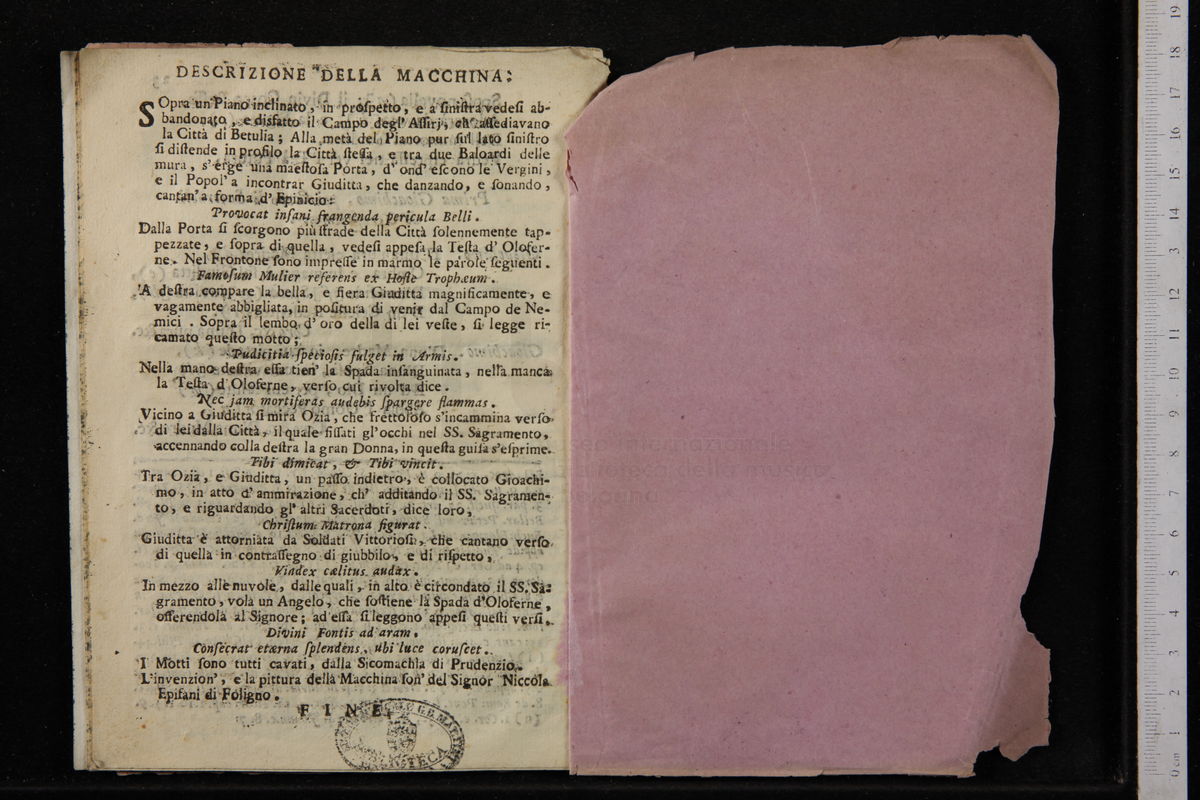 DESCRIZIONE DELLA MACCHINA:
SOpra un'Piano inclinato, in prospetto, e a sinistra vedesi ab-
bandonato, e disfatto il Campo degl' Assirj, ch' assediavano
la Città di Betulia; Alla metà del Piano pur sul lato sinistro
si distende in profilo la Città stessa, e tra due Baloardi delle
mura, s'erge una maestosa Porta, d' ond' escono le Vergini,
e il Popol' a incontrar Giuditta, che danzando, e sonando,
cantan' a forma d' Epinicio:
Provocat insani frangenda pericula Belli.
Dalla Porta si scorgono più strade della Città solennemente tap-
pezzate, e sopra di quella, vedesi appesa la Testa d' Olofer-
ne. Nel Frontone sono impresse in marmo le parole seguenti.
Famosum Mulier referens ex Hoste Trophæum.
A destra compare la bella, e fiera Giuditta magnificamente, e
vagamente abbigliata, in positura di venir dal Campo de Ne-
mici. Sopra il lembo d' oro della di lei veste, si legge ri-
camato questo motto;
Pudicitia speciosis fulget in Armis.
Nella mano destra essa tien' la Spada insanguinata, nella manca
la Testa d' Oloferne, verso cui rivolta dice.
Nec jam mortiferas audebis spargere flammas.
Vicino a Giuditta si mira Ozia, che frettoloso s'incammina verso
di lei dalla Città, il quale fissati gl'occhi nel SS. Sagramento,
accennando colla destra la gran Donna, in questa guisa s'esprime.
Tibi dimicat, & Tibi vincit.
Tra Ozia, e Giuditta, un passo indietro, è collocato Gioachi-
mo, in atto d' ammirazione, ch' additando il SS. Sagramen-
to, e riguardando gl' altri Sacerdoti, dice loro,
Christum Matrona figurat.
Giuditta è attorniata da Soldati Vittoriosi, che cantano verso
di quella in contrassegno di giubbilo, e di rispetto,
Vindex cælitus audax.
In mezzo alle nuvole, dalle quali, in alto è circondato il SS. Sa-
gramento, vola un Angelo, che sostiene la Spada d'Oloferne,
offerendola al Signore; ad essa si leggono appesi questi versi.
Divini Fontis ad aram.
Consecrat etærna splendens, ubi luce coruscet.
I Motti sono tutti cavati, dalla Sicomachia di Prudenzio.
L'invenzion', e la pittura della Macchina son' del Signor Niccola
Epifani di Foligno.
FINE.